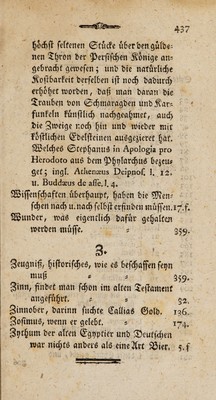 437
höchst seltenen Stücke über den gülde-
nen Thron der Persischen Könige an-
gebracht gewesen; und die natürliche
Kostbarkeit derselben ist noch dadurch
erhöhet worden, daß man daran die
Trauben von Schmaragden und Kar-
funkeln künstlich nachgeahmet, auch
die Zweige noch hin und wieder mit
köstlichen Edelsteinen ausgezieret hat.
Welches Stephanus in Apologia pro
Herodoto aus dem Phylarchus bezeu-
get; ingl. Athenæus Deipnof. l. 12.
u. Buddæus de asse, l. 4.
Wissenschaften überhaupt, haben die Men-
schen nach u. nach selbst erfinden müssen. 17. f.
Wunder, was eigentlich dafür gehalten
werden müsse. 359.
Z.
Zeugniß, historisches, wie es beschaffen seyn
muß 359.
Zinn, findet man schon im alten Testament
angeführt. 52.
Zinnober, darinn suchte Callias Gold. 136.
Zosimus, wenn er gelebt. 174.
Zythum der alten Egyptier und Deutschen
war nichts anders als eine Art Bier. 5. f